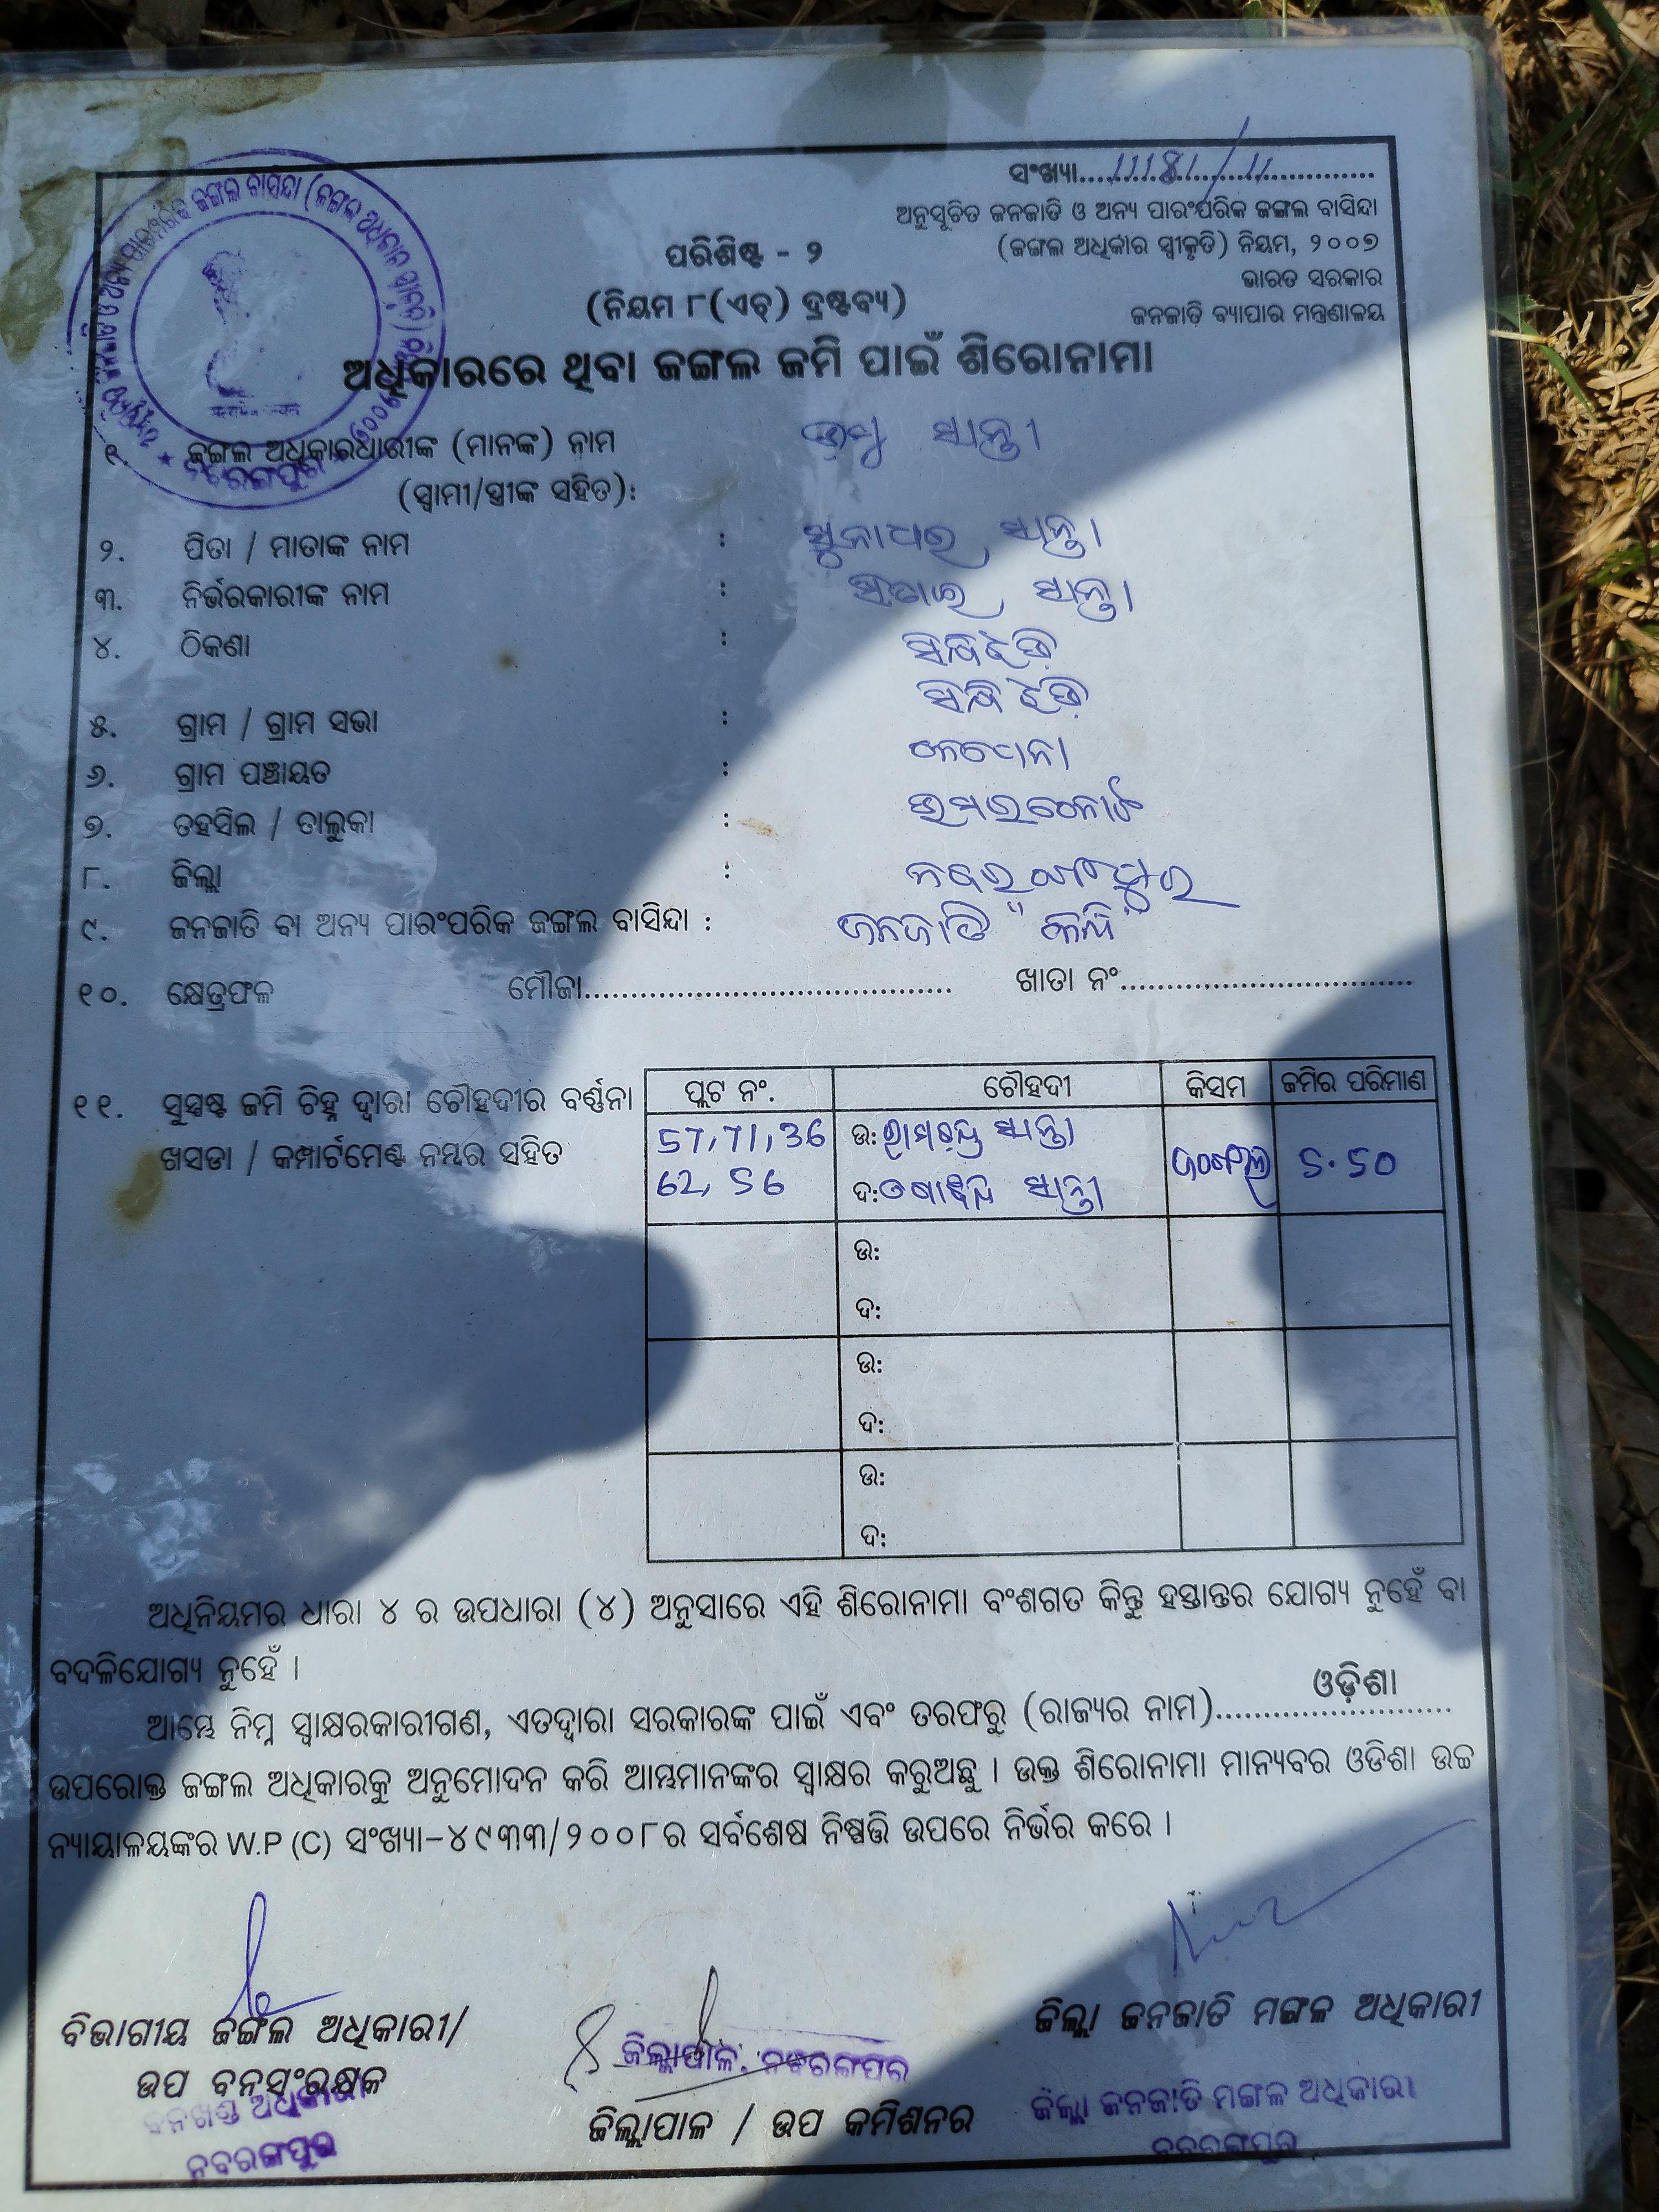 ସଂଖ୍ୟା....11181/11....
ଅନୁସୂଚିତ ଜନଜାତି ଓ ଅନ୍ୟ ପାରଂପରିକ ଜଙ୍ଗଲ ବାସିନ୍ଦା
(ଜଙ୍ଗଲ ଅଧିକାର ସ୍ୱୀକୃତି) ନିୟମ, ୨୦୦୭
ଭାରତ ସରକାର
ଜନଜାତି ବ୍ୟାପାର ମନ୍ତ୍ରଣାଳୟ
ପରିଶିଷ୍ଟ - ୨
(ନିୟମ ୮(ଏଚ୍) ଦ୍ରଷ୍ଟବ୍ୟ)
ଅଧିକାରରେ ଥିବା ଜଙ୍ଗଲ ଜମି ପାଇଁ ଶିରୋନାମା
୧. ଜଙ୍ଗଲ ଅଧିକାରଧାରୀଙ୍କ (ମାନଙ୍କ) ନାମ ସାନ୍ତା
(ସ୍ୱାମୀ/ସ୍ତ୍ରୀଙ୍କ ସହିତ):
୨. ପିତା / ମାତାଙ୍କ ନାମ : ସୁନାଧର ସାନ୍ତା
୩. ନିର୍ଭରକାରୀଙ୍କ ନାମ : ସାନ୍ତା
୪. ଠିକଣା :
୫. ଗ୍ରାମ / ଗ୍ରାମ ସଭା :
୬. ଗ୍ରାମ ପଞ୍ଚାୟତ :
୭. ତହସିଲ / ତାଲୁକା : ଉମରକୋଟ
୮. ଜିଲ୍ଲା : ନବରଂଗପୁର
୯. ଜନଜାତି ବା ଅନ୍ୟ ପାରଂପରିକ ଜଙ୍ଗଲ ବାସିନ୍ଦା : ଜନଜାତି
୧୦. କ୍ଷେତ୍ରଫଳ ମୌଜା........................................ ଖାତା ନଂ................................
୧୧. ସୁସ୍ପଷ୍ଟ ଜମି ଚିହ୍ନ ଦ୍ୱାରା ଚୌହଦୀର ବର୍ଣ୍ଣନା
ଖସଡା / କମ୍ପାର୍ଟମେଣ୍ଟ ନମ୍ବର ସହିତ
ପ୍ଲଟ ନଂ. ଚୌହଦୀ କିସମ ଜମିର ପରିମାଣ
57,71,36 ଉ: ରାମଚନ୍ଦ୍ର ସାନ୍ତା ଜଂଗଲ 5.50
62, 56 ଦ: ସାନ୍ତା
ଉ:
ଦ:
ଉ:
ଦ:
ଉ:
ଦ:
ଅଧିନିୟମର ଧାରା ୪ ର ଉପଧାରା (୪) ଅନୁସାରେ ଏହି ଶିରୋନାମା ବଂଶଗତ କିନ୍ତୁ ହସ୍ତାନ୍ତର ଯୋଗ୍ୟ ନୁହେଁ ବା
ବଦଳିଯୋଗ୍ୟ ନୁହେଁ ।
ଆମ୍ଭେ ନିମ୍ନ ସ୍ୱାକ୍ଷରକାରୀଗଣ, ଏତଦ୍ୱାରା ସରକାରଙ୍କ ପାଇଁ ଏବଂ ତରଫରୁ (ରାଜ୍ୟର ନାମ)..........ଓଡ଼ିଶା..........
ଉପରୋକ୍ତ ଜଙ୍ଗଲ ଅଧିକାରକୁ ଅନୁମୋଦନ କରି ଆମ୍ଭମାନଙ୍କର ସ୍ୱାକ୍ଷର କରୁଅଛୁ । ଉକ୍ତ ଶିରୋନାମା ମାନ୍ୟବର ଓଡିଶା ଉଚ୍ଚ
ନ୍ୟାୟାଳୟଙ୍କର W.P (C) ସଂଖ୍ୟା-୪୯୩୩/୨୦୦୮ର ସର୍ବଶେଷ ନିଷ୍ପତ୍ତି ଉପରେ ନିର୍ଭର କରେ ।
ବିଭାଗୀୟ ଜଙ୍ଗଲ ଅଧିକାରୀ/
ଉପ ବନସଂରକ୍ଷକ
ବନଖଣ୍ଡ ଅଧିକାରୀ
ନବରଙ୍ଗପୁର
ଜିଲ୍ଲାପାଳ, ନବରଙ୍ଗପୁର
ଜିଲ୍ଲାପାଳ / ଉପ କମିଶନର
ଜିଲ୍ଲା ଜନଜାତି ମଙ୍ଗଳ ଅଧିକାରୀ
ଜିଲ୍ଲା ଜନଜାତି ମଙ୍ଗଳ ଅଧିକାରୀ
ନବରଙ୍ଗପୁର